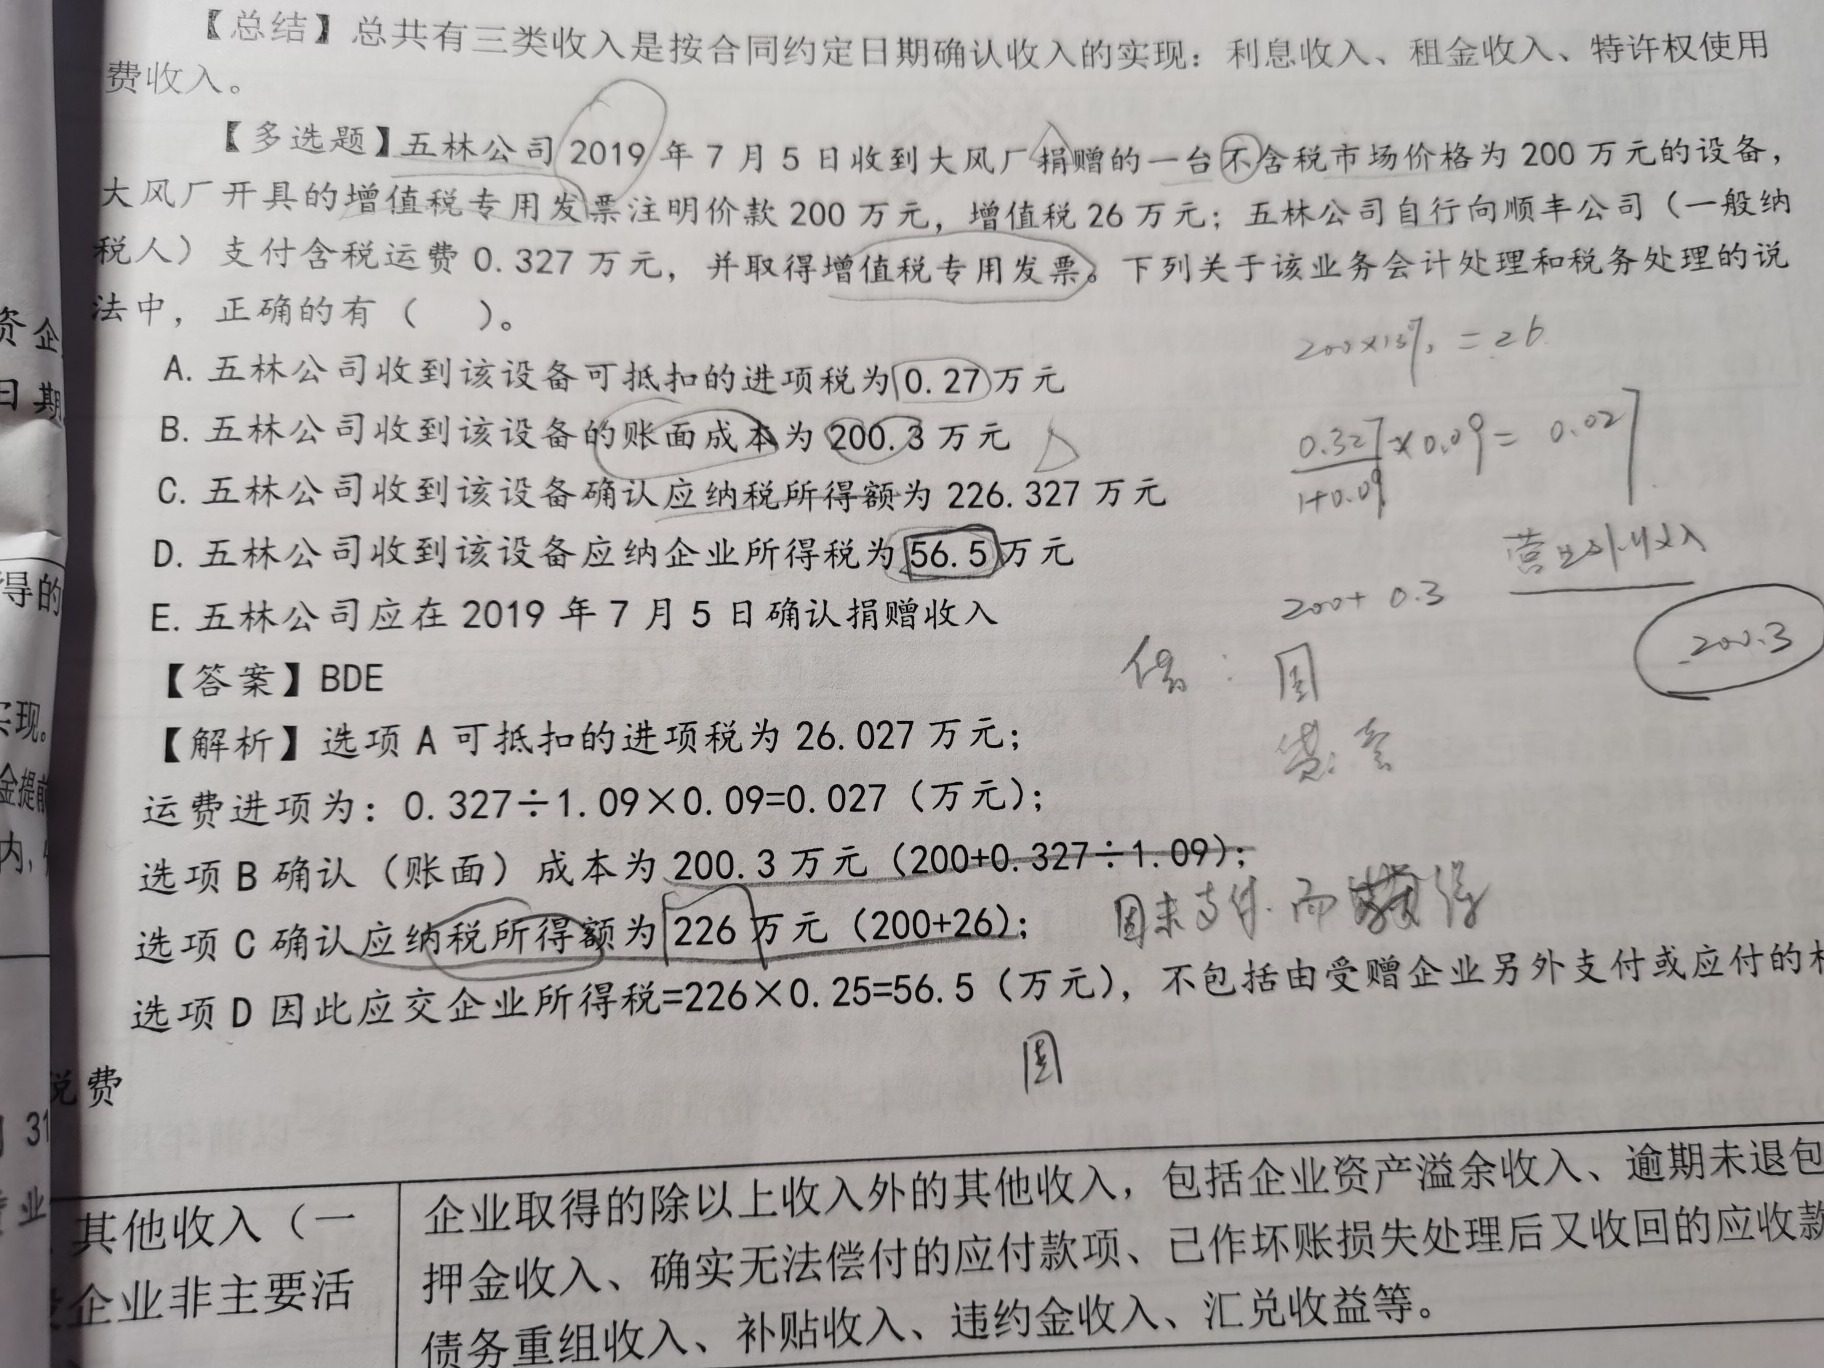 【总结】总共有三类收入是按合同约定日期确认收入的实现：利息收入、租金收入、特许权使用
费收入。
【多选题】五林公司 2019 年 7 月 5 日收到大风厂捐赠的一台不含税市场价格为 200 万元的设备，
大风厂开具的增值税专用发票注明价款 200 万元，增值税 26 万元；五林公司自行向顺丰公司（一般纳
税人）支付含税运费 0.327 万元，并取得增值税专用发票。下列关于该业务会计处理和税务处理的说
法中，正确的有（　）。
200×13% = 26
A. 五林公司收到该设备可抵扣的进项税为 0.27 万元
B. 五林公司收到该设备的账面成本为 200.3 万元
0.327 ×0.09= 0.027
1+0.09
C. 五林公司收到该设备确认应纳税所得额为 226.327 万元
D. 五林公司收到该设备应纳企业所得税为 56.5 万元
营业外收入
E. 五林公司应在 2019 年 7 月 5 日确认捐赠收入
200+ 0.3
200.3
【答案】BDE
【解析】选项 A 可抵扣的进项税为 26.027 万元；
运费进项为：0.327÷1.09×0.09=0.027（万元）；
选项 B 确认（账面）成本为 200.3 万元（200+0.327÷1.09）；
选项 C 确认应纳税所得额为 226 万元（200+26）；
选项 D 因此应交企业所得税=226×0.25=56.5（万元），不包括由受赠企业另外支付或应付的
税费
资企
日期
得的
实现。
金提前
内，
31
业
其他收入（一
企业非主要活
企业取得的除以上收入外的其他收入，包括企业资产溢余收入、逾期未退包
押金收入、确实无法偿付的应付款项、已作坏账损失处理后又收回的应收款
债务重组收入、补贴收入、违约金收入、汇兑收益等。